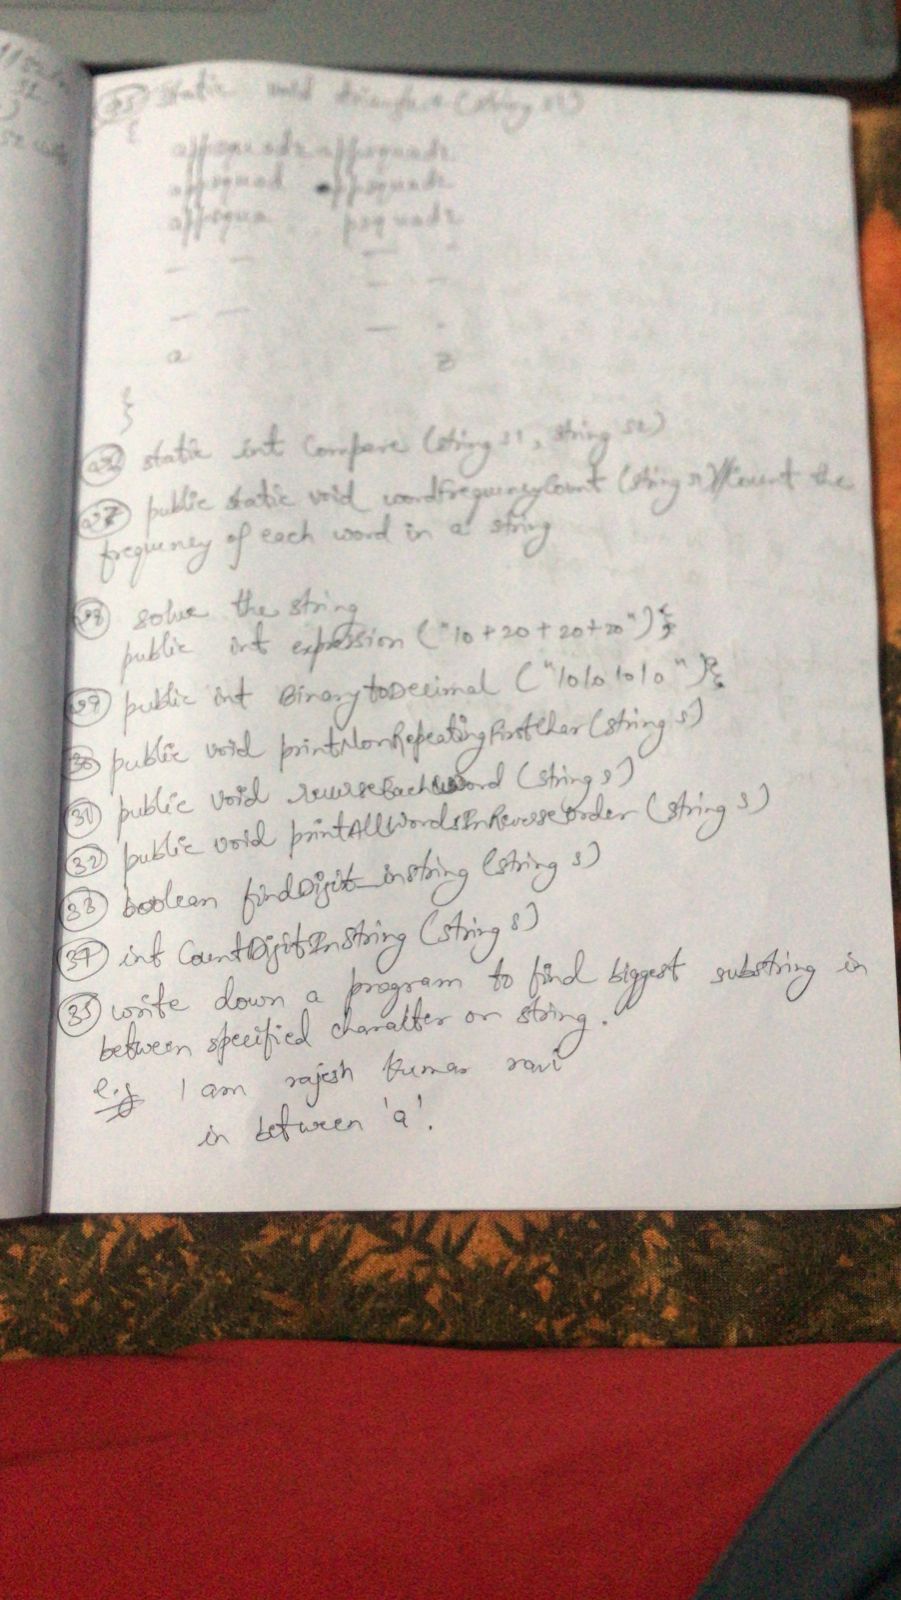 25 static void triangle (string s1)
{
appsquadz appsquadz
appsquad ppsquadz
appsqua psquadz
— — — -
— — — -
a z
}
26 static int Compare (string s1, string s2)
27 public static void wordfrequencyCount (string s) // Count the
frequency of each word in a string
28 solve the string
public int expression ("10+20+20+20"){}
29 public int BinarytoDecimal ("10101010"){}
30 public void printNonRepeatingFirstChar (string s)
31 public void reverseEachWord (string s)
32 public void printAllWordsInReverseOrder (string s)
33 boolean findDigit_instring (string s)
34 int CountDigitInString (string s)
35 write down a program to find biggest substring in
between specified character or string.
e.g I am rajesh kumar ravi
in between 'a'.